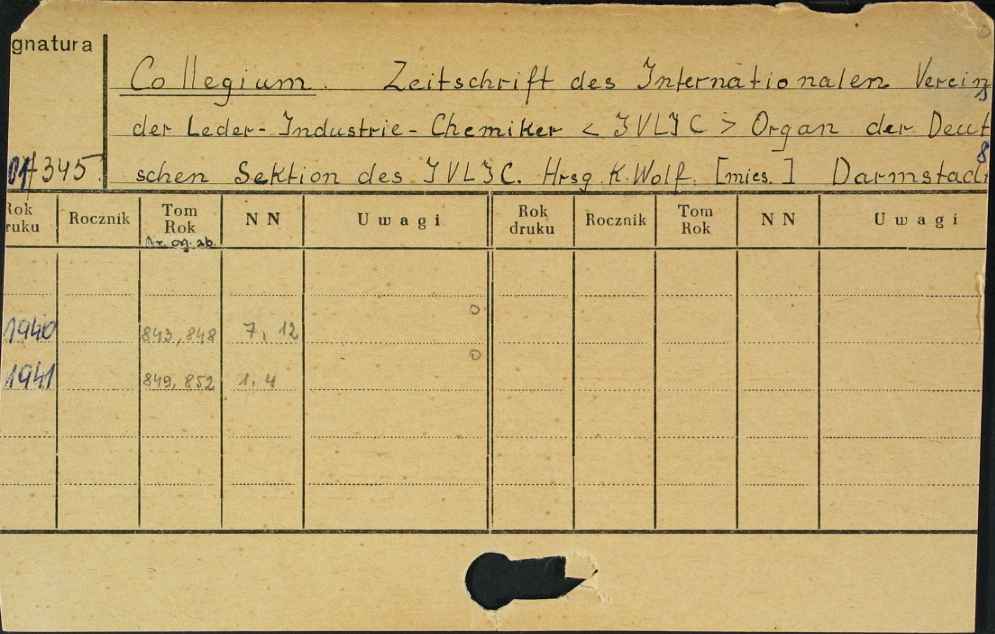 gnatura
Collegium. Zeitschrift des Internationalen Verein
der Leder-Industrie-Chemiker < IVLIC > Organ der Deut
345 schen Sektion des IVLIC. Hrsg. K. Wolf. [mies.] Darmstadt
Rok druku Rocznik Tom Rok N N Uwagi Rok druku Rocznik Tom Rok N N Uwagi
1940 843, 848 7, 12
1941 849, 852 1, 4